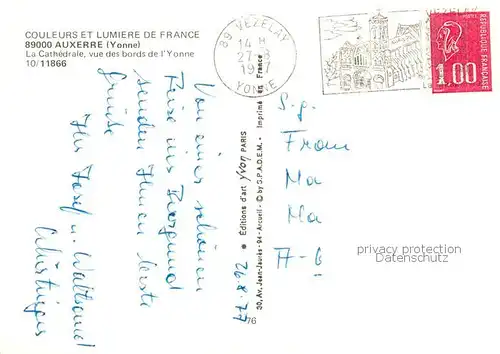 COULEURS ET LUMIERE DE FRANCE
89000 AUXERRE (Yonne)
La Cathédrale, vue des bords de l'Yonne
10/11866
89 VEZELAY
14 H
27-8
1977
YONNE
VEZELAY
REPUBLIQUE FRANÇAISE
1,00
Von einer schönen
Reise ins Burgund
senden Ihnen beste
Grüsse
Ihr Josef u.
Éditions d'art yvon PARIS
Imprimé en France
30, Av. Jean-Jaurès - 94 - Arcueil - © by S.P.A.D.E.M.
76
S.g.
Frau
Ma
Ma
A-6
privacy protection
Datenschutz